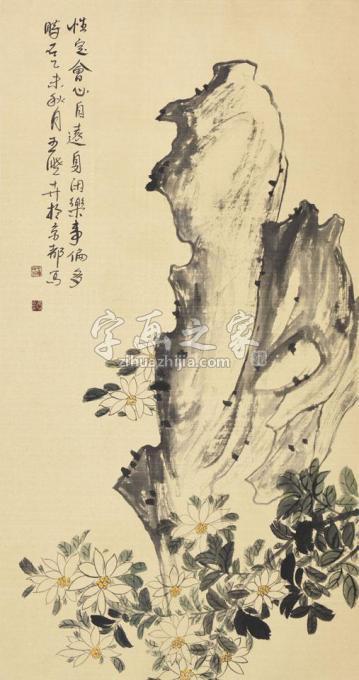 性定會心自遠身閑樂事偏多
時在乙未秋月王
并於京都寫
字画之家
zihuazhijia.com